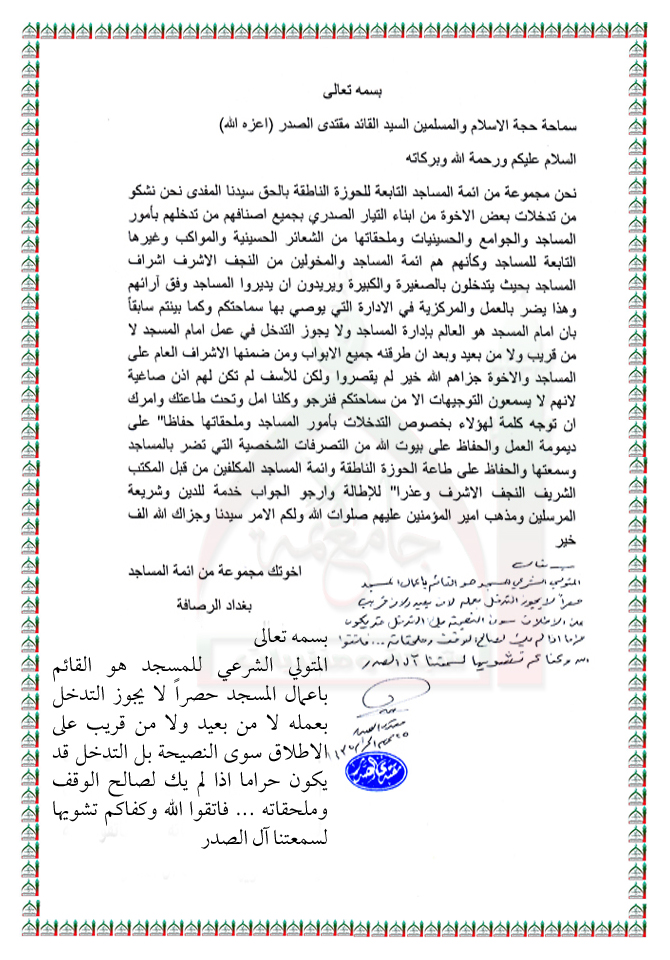 بسمه تعالى
سماحة حجة الاسلام والمسلمين السيد القائد مقتدى الصدر (اعزه الله)
السلام عليكم ورحمة الله وبركاته
نحن مجموعة من ائمة المساجد التابعة للحوزة الناطقة بالحق سيدنا المفدى نحن نشكو
من تدخلات بعض الاخوة من ابناء التيار الصدري بجميع اصنافهم من تدخلهم بأمور
المساجد والجوامع والحسينيات وملحقاتها من الشعائر الحسينية والمواكب وغيرها
التابعة للمساجد وكأنهم هم ائمة المساجد والمخولين من النجف الاشرف اشراف
المساجد بحيث يتدخلون بالصغيرة والكبيرة ويريدون ان يديروا المساجد وفق آرائهم
وهذا يضر بالعمل والمركزية في الادارة التي يوصي بها سماحتكم وكما بينتم سابقاً
بان امام المسجد هو العالم بإدارة المساجد ولا يجوز التدخل في عمل امام المسجد لا
من قريب ولا من بعيد وبعد ان طرقنه جميع الابواب ومن ضمنها الاشراف العام على
المساجد والاخوة جزاهم الله خير لم يقصروا ولكن للأسف لم تكن لهم اذن صاغية
لانهم لا يسمعون التوجيهات الا من سماحتكم فنرجو وكلنا امل وتحت طاعتك وامرك
ان توجه كلمة لهؤلاء بخصوص التدخلات بأمور المساجد وملحقاتها حفاظا" على
ديمومة العمل والحفاظ على بيوت الله من التصرفات الشخصية التي تضر بالمساجد
وسمعتها والحفاظ على طاعة الحوزة الناطقة وائمة المساجد المكلفين من قبل المكتب
الشريف النجف الاشرف وعذرا" للإطالة وارجو الجواب خدمة للدين وشريعة
المرسلين ومذهب امير المؤمنين عليهم صلوات الله ولكم الامر سيدنا وجزاك الله الف
خير
اخوتك مجموعة من ائمة المساجد
بغداد الرصافة
بسمه تعالى
المتولي الشرعي للمسجد هو القائم باعمال المسجد
حصراً لا يجوز التدخل بعمله لا من بعيد ولا من قريب
على الاطلاق سوى النصيحة بل التدخل قد يكون
حراما اذا لم يك لصالح الوقف وملحقاته ... فاتقوا
الله وكفاكم تشويها لسمعتنا آل الصدر
مقتدى الصدر
بسمه تعالى
المتولي الشرعي للمسجد هو القائم
باعمال المسجد حصراً لا يجوز التدخل
بعمله لا من بعيد ولا من قريب على
الاطلاق سوى النصيحة بل التدخل قد
يكون حراما اذا لم يك لصالح الوقف
وملحقاته ... فاتقوا الله وكفاكم تشويها
لسمعتنا آل الصدر